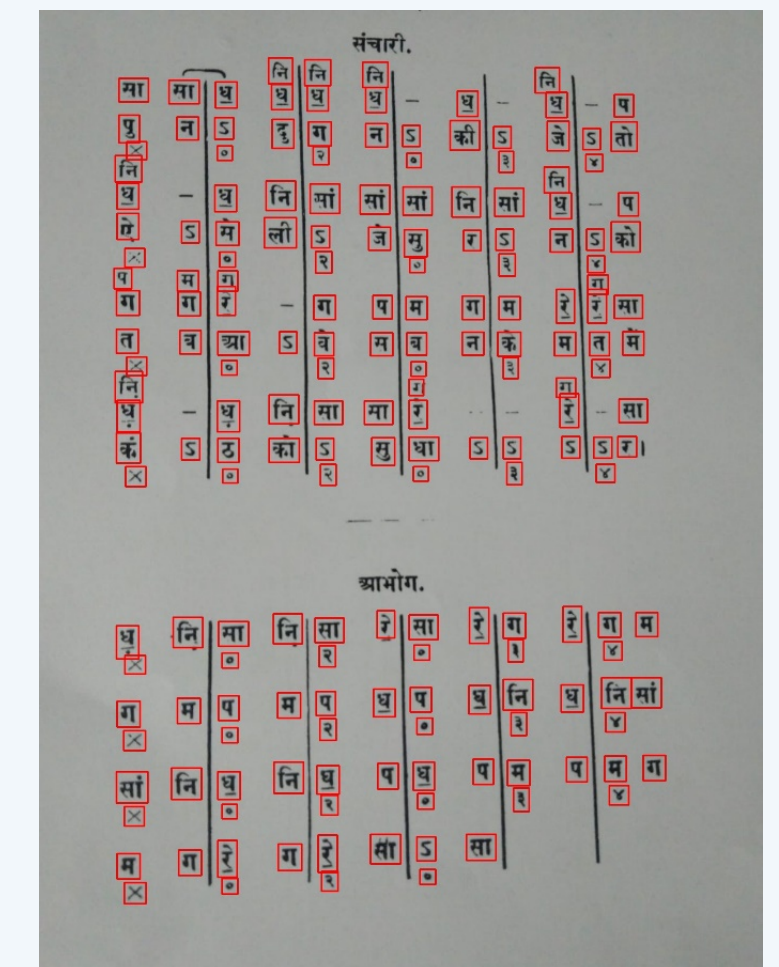 संचारी.
नि नि नि नि
सा सा ध॒ ध॒ ध॒ ध॒ – ध॒ – ध॒ – प
पु न ऽ दु ग न ऽ की ऽ जे ऽ तो
× ० २ ० ३ ४
नि नि
ध॒ – ध॒ नि सां सां सां नि सां ध॒ – प
ऐ ऽ मे ली ऽ जे सु र ऽ न ऽ को
× ० २ ० ३ ४
प म ग ग
ग ग रे॒ – ग प म ग म रे॒ रे॒ सा
त ब आ ऽ वे स ब न के म त में
× ० २ ० ३ ४
नि़ ग ग
ध़॒ – ध़॒ नि सा सा रे॒ – – रे॒ – सा
कं ऽ ठ को ऽ सु धा ऽ ऽ ऽ ऽ र।
× ० २ ० ३ ४
आभोग.
ध़॒ नि़ सा नि़ सा रे॒ सा रे॒ ग रे॒ ग म
× ० २ ० ३ ४
ग म प म प ध॒ प ध॒ नि ध॒ नि सां
× ० २ ० ३ ४
सां नि ध॒ नि ध॒ प ध॒ प म प म ग
× ० २ ० ३ ४
म ग रे॒ ग रे॒ सा ऽ सा
× ० २ ०